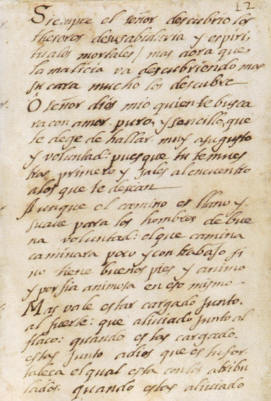 12
Siempre el señor descubrio los
thesoros de su sabiduria y espiri
tu a los mortales / mas aora que
la malicia va descubriendo mas
su cara mucho los descubre
O señor dios mio quien te busca
ra con amor puro, y sencillo, que
te dege de hallar muy a su gusto
y voluntad: pues que tu te mues
tras primero y sales al encuentro
a los que te desean
Aunque el camino es llano y
suave para los hombres de bue
na voluntad: el que camina
caminara poco y con trabajo si
no tiene buenos pies y animo
y porfia animosa en eso mismo
Mas vale estar cargado junto
al fuerte: que aliviado junto al
flaco: quando estas cargado
estas junto a dios que es tu for
taleça el qual esta con los atribu
lados. quando estas aliviado